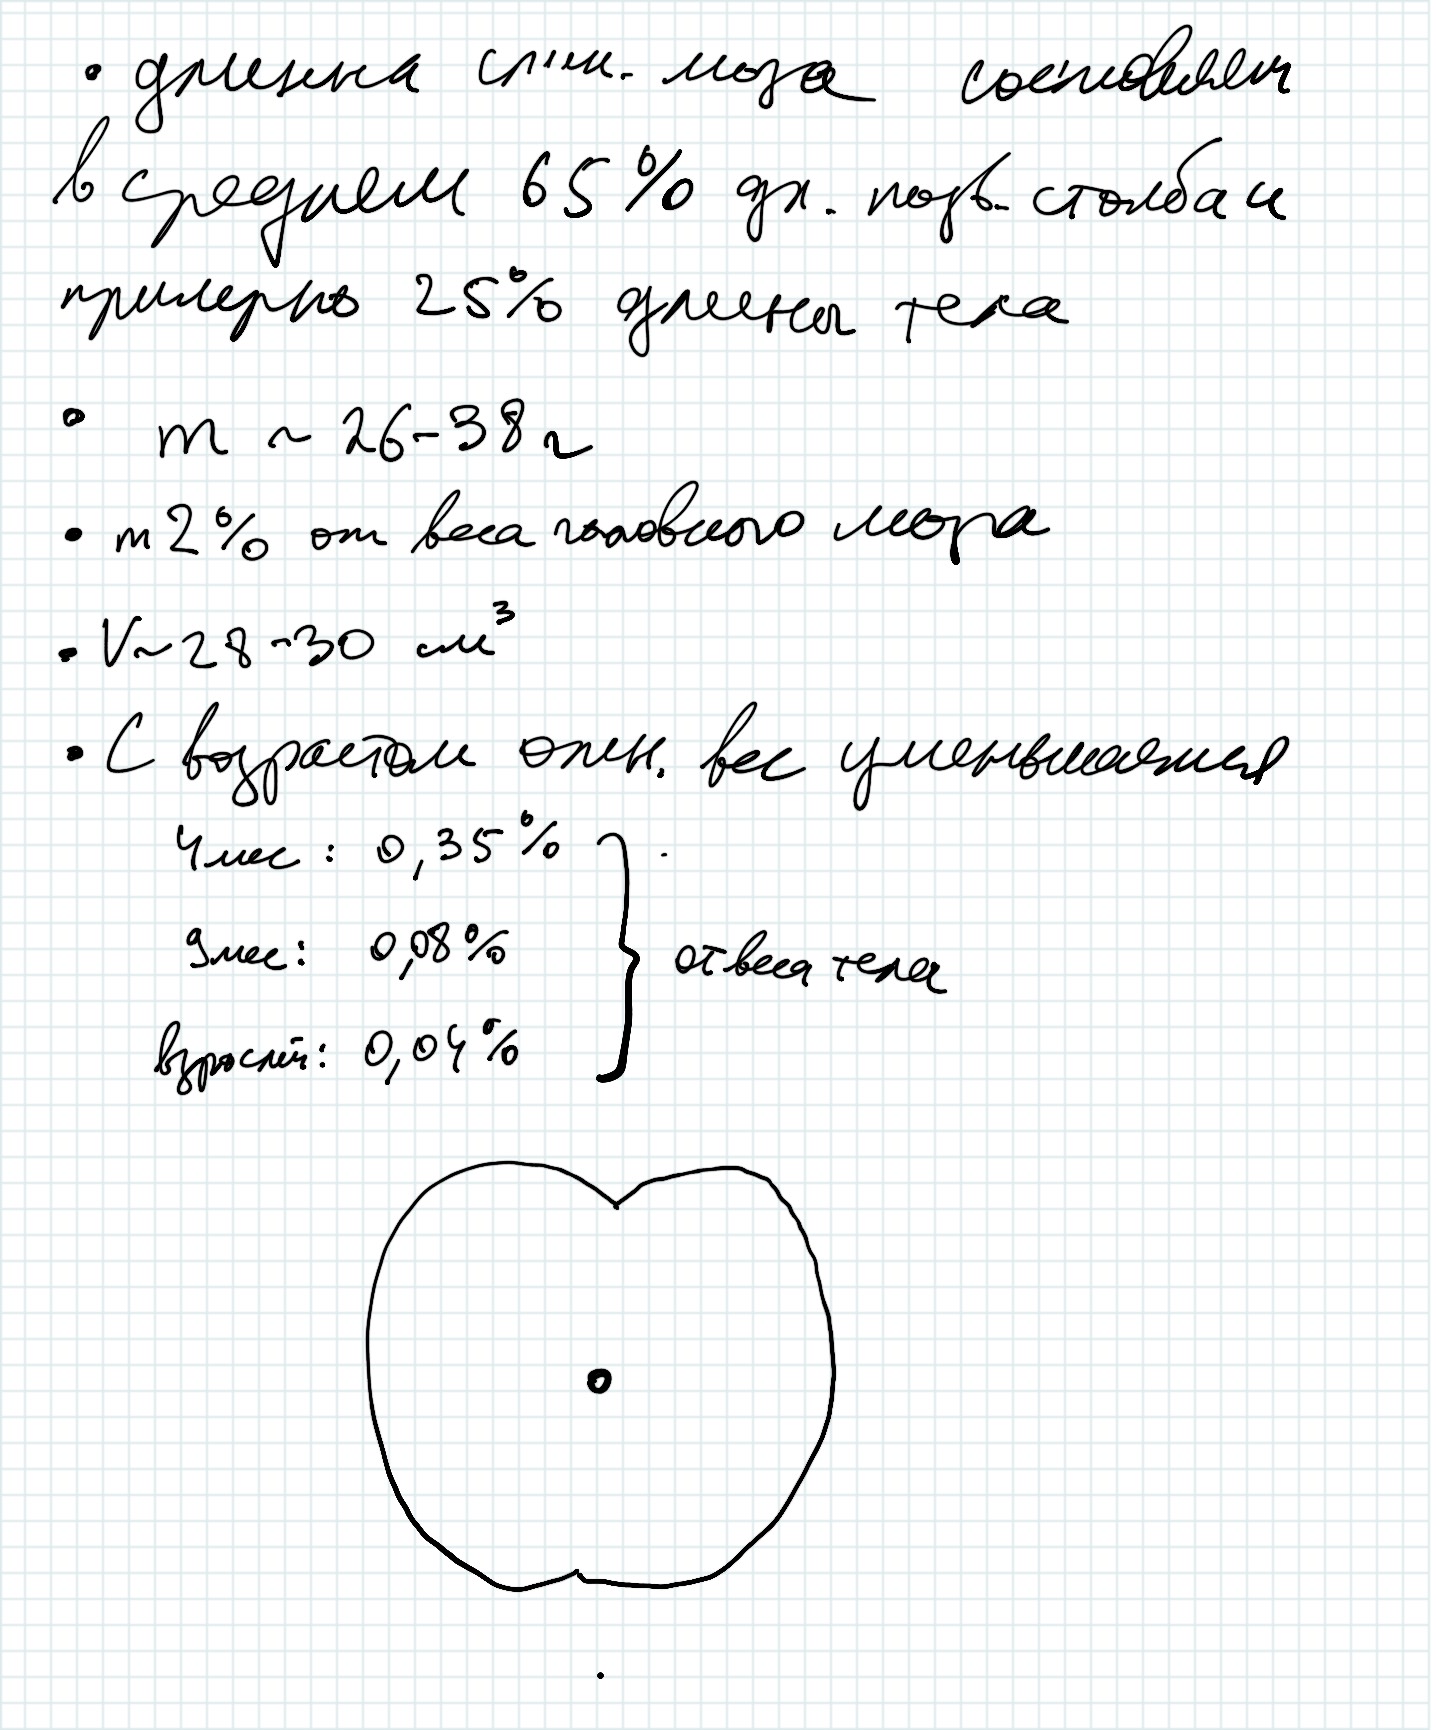 • длинна спин. мозга составляет
в среднем 65% дл. позв. столба и
примерно 25% длины тела
• m ~ 26-38 г
• m 2% от веса головного мозга
• V ~ 28-30 см³
• С возрастом отн. вес уменьшается
4 мес: 0,35%
9 мес: 0,08%
от веса тела
взрослый: 0,04%